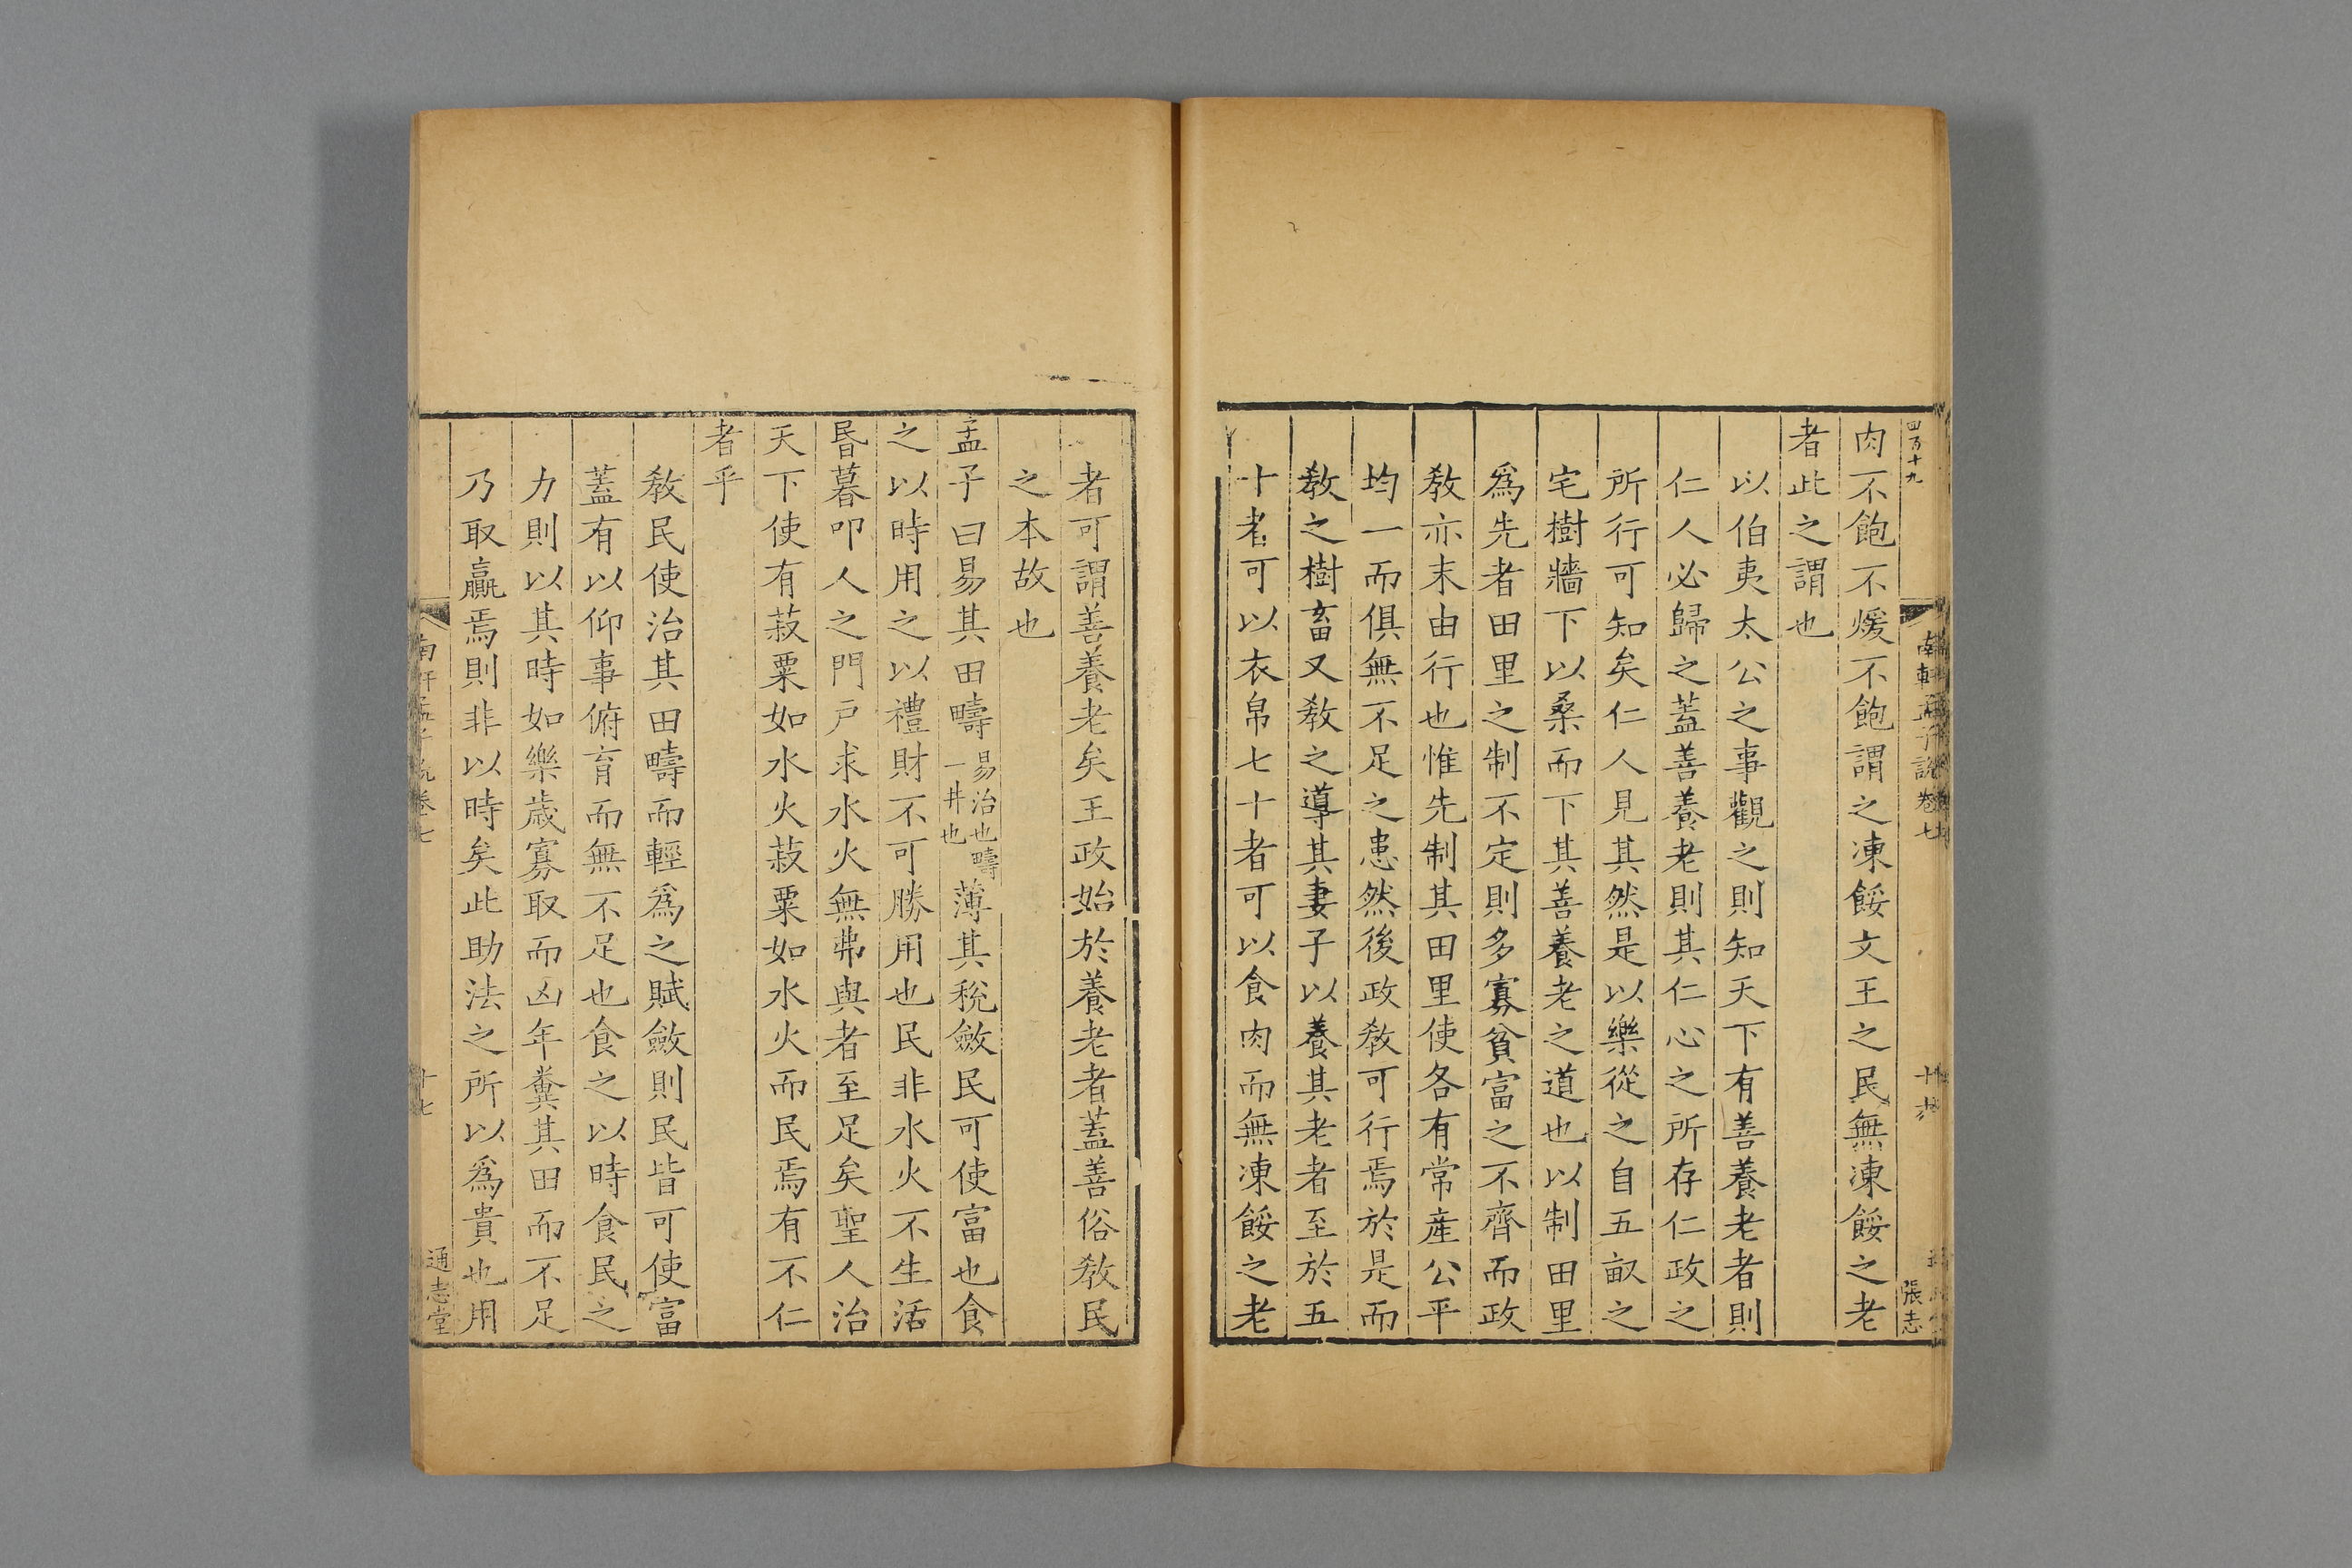 四百十九
肉不飽不煖不飽謂之凍餒文王之民無凍餒之老
者此之謂也
以伯夷太公之事觀之則知天下有善養老者則
仁人必歸之蓋善養老則其仁心之所存仁政之
所行可知矣仁人見其然是以樂從之自五畝之
宅樹牆下以桑而下其善養老之道也以制田里
爲先者田里之制不定則多寡貧富之不齊而政
敎亦末由行也惟先制其田里使各有常產公平
均一而俱無不足之患然後政敎可行焉於是而
敎之樹畜又敎之導其妻子以養其老者至於五
十者可以衣帛七十者可以食肉而無凍餒之老
張志
者可謂善養老矣王政始於養老者蓋善俗敎民
之本故也
孟子曰易其田疇易治也疇一井也薄其稅斂民可使富也食
之以時用之以禮財不可勝用也民非水火不生活
昬暮叩人之門戸求水火無弗與者至足矣聖人治
天下使有菽粟如水火菽粟如水火而民焉有不仁
者乎
敎民使治其田疇而輕爲之賦斂則民皆可使富
蓋有以仰事俯育而無不足也食之以時食民之
力則以其時如樂歲寡取而凶年糞其田而不足
乃取贏焉則非以時矣此助法之所以爲貴也用
南軒孟子說卷七
十七
通志堂